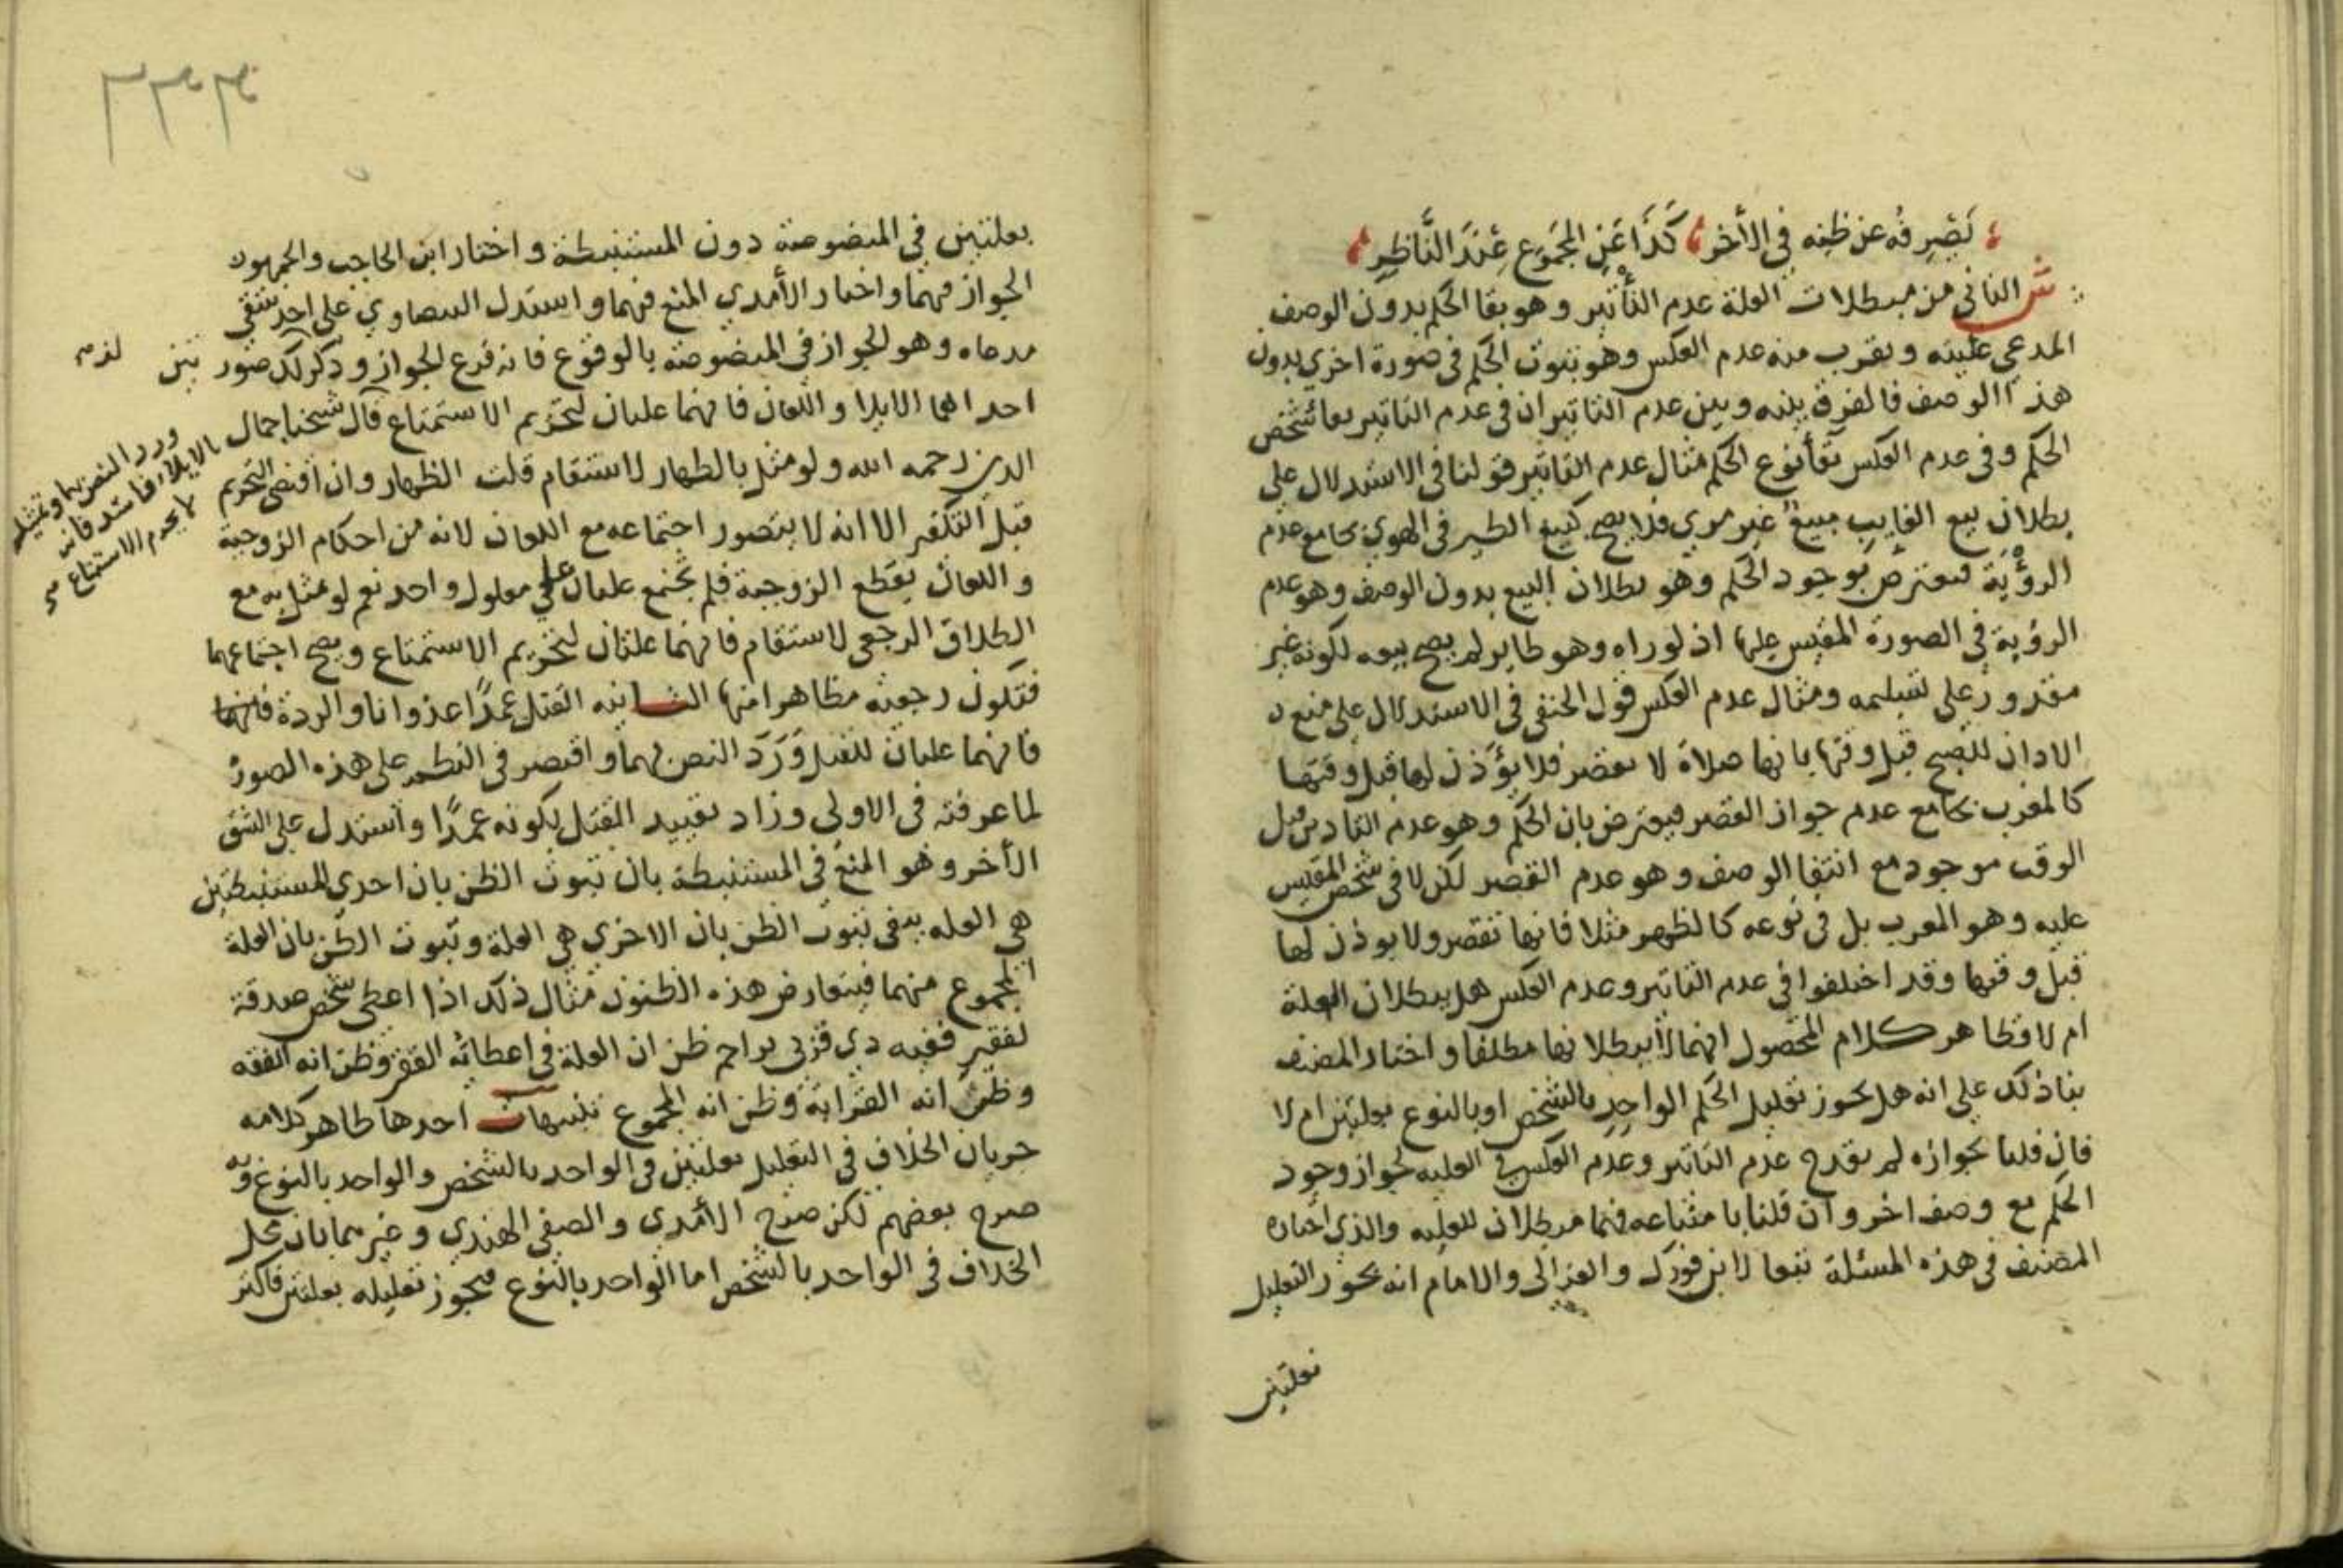 يَصْرِفُه عن ظنِه في الأخر كَذَا عَنِ المجَمَوع عِنَدَ النَّاظِرِ
ش الثاني من مبطلات العلة عدم التأثير وهو بقا الحكم بدون الوصف
المدعي علييته ويقرب منه عدم العكس وهو ثبوت الحكم في صورة اخري بدون
هذا الوصف فالفرق بينه وبين عدم التاثير ان في عدم التاثير بقا شخص
الحكم وفي عدم العكس بقأ نوع الحكم مثال عدم التاثير قولنا في الاستدلال علي
بطلان بيع الغايب مبيع غير مري فلا يصح كبيع الطير في الهوي بجامع عدم
الرؤْية فيعترض بوجود الحكم وهو بطلان البيع بدون الوصف وهو عدم
الرؤية في الصورة المقيس عليها اذ لو راه وهو طاير لم يصح بيعه لكونه غير
مقدور علي تسليمه ومثال عدم العكس قول الحنفي في الاستدلال علي منع
الاذان للصبح قبل وقتها بانها صلاة لا تقصر فلا يؤذن لها قبل وقتها
كالمغرب بجامع عدم جواز القصر فيعترض بان الحكم وهو عدم التاذين قبل
الوقت موجود مع انتفا الوصف وهو عدم القصر لكن لا في شخص المقيس
عليه وهو المغرب بل في نوعه كالظهر مثلا فانها تقصر ولا يوذن لها
قبل وقتها وقد اختلفوا في عدم التاثير وعدم العكس هل يبطلان العلة
ام لا وظاهر كلام المحصول انهما لا يبطلانها مطلقا واختار المصنف
بنا ذلك علي انه هل يجوز تعليل الحكم الواحد بالشخص او بالنوع بعلتين ام لا
فان قلنا بجوازه لم يقدح عدم التاثير وعدم العكس في العليه لجواز وجود
الحكم مع وصف اخر وان قلنا بامتناعه فهما مبطلان للعليه والذي اختاره
المصنف في هذه المسئلة تبعا لابن فورك والغزالي والامام انه يجوز التعليل
بعلتين
بعلتين في المنصوصة دون المستنبطة واختار ابن الحاجب والجمهور
الجواز فيهما واختار الأمدي المنع فيهما واستدل البيضاوي علي احد شقي
مدعاه وهو الجواز في المنصوصة بالوقوع فانه فرع الجواز وذكر لذلك صور تين
احداهما الايلا واللعان فانهما علتان لتحريم الاستمتاع قال شيخنا جمال
الدين رحمه الله ولو مثل بالظهار لاستقام قلت الظهار وان اقتضي التحريم
قبل التكفير الا انه لا يتصور اجتماعه مع اللعان لانه من احكام الزوجية
واللعان يقطع الزوجية فلم يجتمع علتان علي معلول واحد نعم لو مثل به مع
الطلاق الرجعي لاستقام فانهما علتان لتحريم الاستمتاع ويصح اجتماعهما
فتكون رجعية مظاهرا منها الثانيه القتل عمدًا عدوانا والردة فانهما
فانهما علتان للقتل وَرَدَ النص بهما واقتصر في النظم علي هذه الصورة
لما عرفته في الاولي وزاد تقييد القتل بكونه عمدًا واستدل علي الشق
الأخر وهو المنع في المستنبطة بان ثبوت الظن بان احدي المستنبطتين
هي العله ينفي ثبوت الظن بان الاخري هي العلة وثبوت الظن بان العلة
المجموع منهما فيتعارض هذه الظنون مثال ذلك اذا اعطي شخص صدقة
لفقير فقيه ذي قربي يراحم ظن ان العلة في اعطائه الفقر وظن انه الفقه
وظن انه القرابة وظن انه المجموع تنبيهات احدها ظاهر كلامه
جريان الخلاف في التعليل بعلتين في الواحد بالشخص والواحد بالنوع وبه
صرح بعضهم لكن صرح الأمدي والصفي الهندي وغيرهما بان محل
الخلاف في الواحد بالشخص اما الواحد بالنوع فيجوز تعليله بعلتين فاكثر
ورد النص بها وتمثيله
بالايلاء فاسد فانه
لا يحرم الاستمتاع